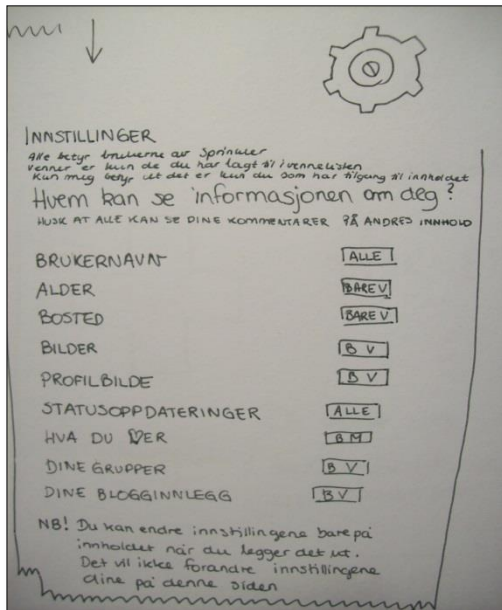 INNSTILLINGER
Alle betyr brukerne av Sprinkler
Venner er kun de du har lagt til i vennelisten
Kun meg betyr at det er kun du som har tilgang til innholdet
Hvem kan se informasjonen om deg?
HUSK AT ALLE KAN SE DINE KOMMENTARER PÅ ANDRES INNHOLD
BRUKERNAVN ALLE
ALDER BARE V
BOSTED BARE V
BILDER B V
PROFILBILDE B V
STATUSOPPDATERINGER ALLE
HVA DU ♡ER B M
DINE GRUPPER B V
DINE BLOGGINNLEGG B V
NB! Du kan endre innstillingene bare på
innholdet når du legger det ut.
Det vil ikke forandre innstillingene
dine på denne siden